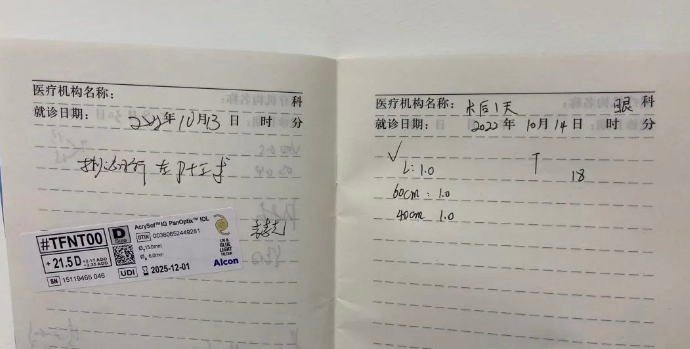 医疗机构名称： 科
就诊日期： 2022年10月13日 时 分
#TFNT00
+21.5 D
SN 15119465 046
D
AcrySof™ IQ PanOptix™ IOL
GTIN 00380652449261
UV & BLUE LIGHT FILTER
UDI
2025-12-01
Alcon
医疗机构名称： 术后1天 眼科
就诊日期： 2022年10月14日 时 分
√
L: 1.0 T 18
60cm : 1.0
40cm 1.0